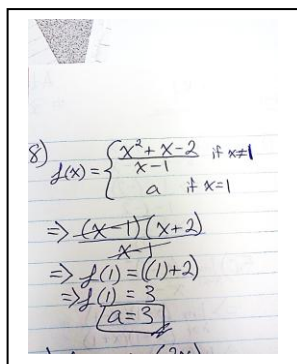 8) f(x) = { x² + x - 2 / x - 1 if x≠1
a if x=1
=> (x-1)(x+2) / x-1
=> f(1) = ((1)+2)
=> f(1) = 3
a=3